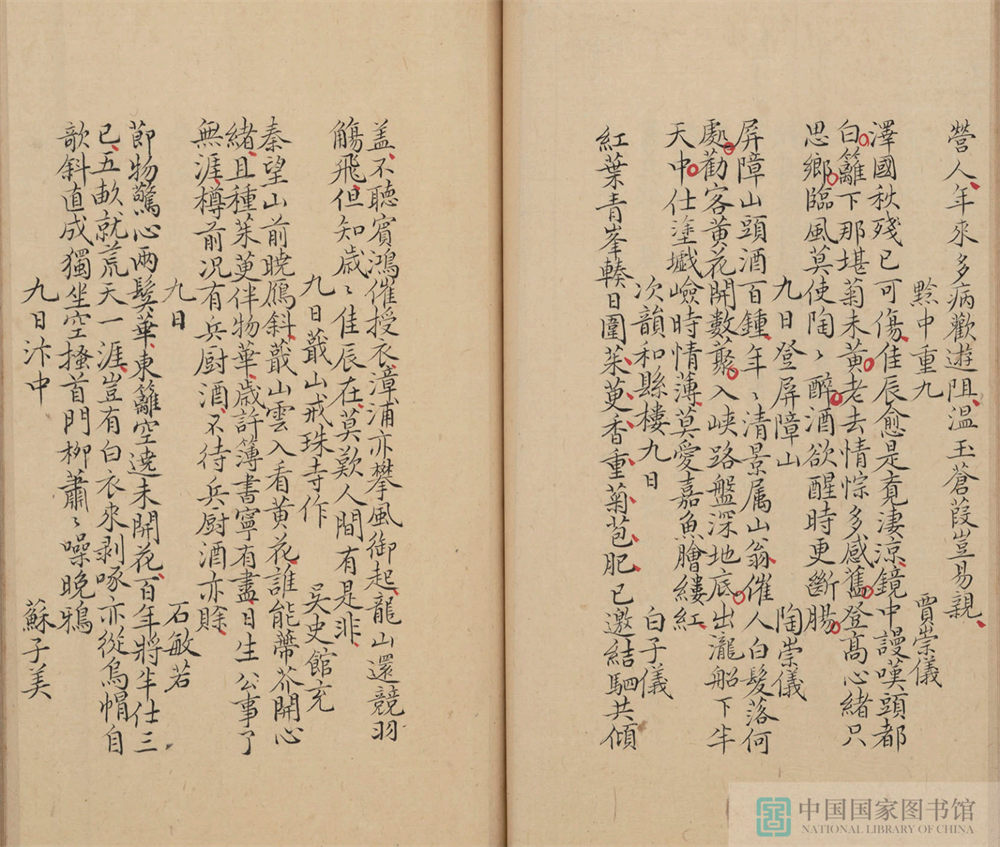 營人年來多病歡遊阻溫玉蒼葭豈易親
黔中重九 賈崇儀
澤國秋殘已可傷佳辰愈是覔淒涼鏡中謾嘆頭都
白籬下那堪菊未黃老去情悰多感舊登髙心緒只
思鄉臨風莫使陶〻醉酒欲醒時更斷腸
九日登屏障山 陶崇儀
屏障山頭酒百鍾年〻清景属山翁催人白髪落何
處勸客黃花開數藂入峽路盤深地底出瀧船下半
天中仕塗巇嶮時情薄莫愛嘉魚膾縷紅
次韻和縣樓九日 白子儀
紅葉青峯輳日圍茱萸香重菊苞肥已邀結駟共傾
盖不聽賓鴻催授衣漳浦亦攀風御起龍山還競羽
觴飛但知歳〻佳辰在莫歎人間有是非
九日蕺山戒珠寺作 吴史館充
秦望山前曉鴈斜蕺山雲入看黃花誰能蔕芥開心
緒且種茱萸伴物華歳許簿書寧有盡日生公事了
無涯樽前况有兵厨酒不待兵厨酒亦賒
九日 石敏若
節物驚心兩髩華東籬空遶未開花百年將半仕三
已五畝就荒天一涯豈有白衣來剥啄亦從烏帽自
欹斜直成獨坐空搔首門柳蕭〻噪晚鴉
九日汴中 蘇子美
中国国家图书馆
NATIONAL LIBRARY OF CHINA